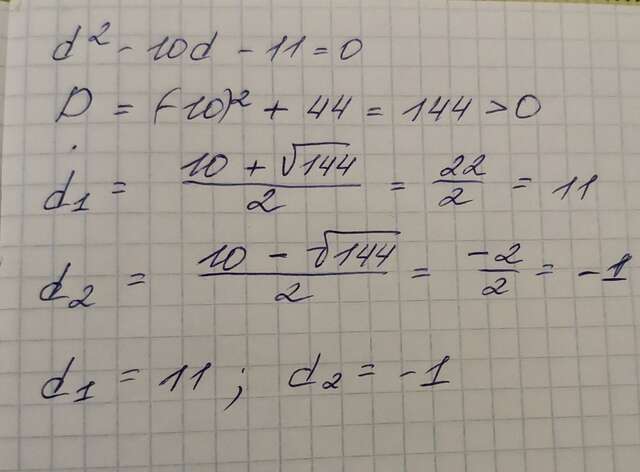 d² - 10d - 11 = 0
D = (-10)² + 44 = 144 > 0
d₁ = (10 + √144)/2 = 22/2 = 11
d₂ = (10 - √144)/2 = -2/2 = -1
d₁ = 11 ; d₂ = -1